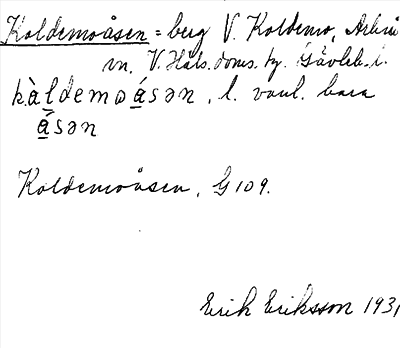 Koldemoåsen = berg V. Koldemo, Arbrå
sn, V. Häls. doms. hg. Gävleb. l.
kàldemoásən, l. vanl. bara
ásən
Koldemoåsen, G 109.
Erik Eriksson 1931